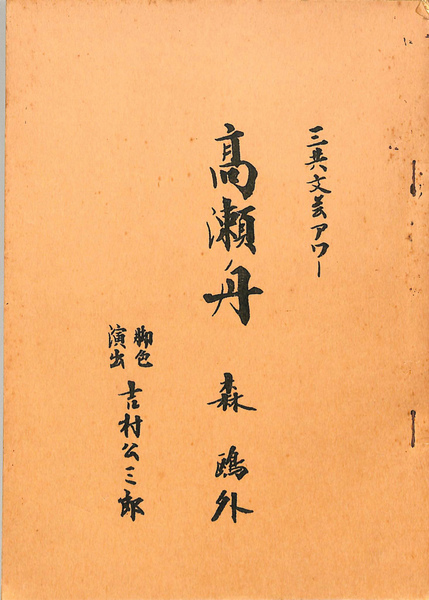 三共文芸アワー
高瀬舟 森鴎外
脚色
演出
吉村公三郎